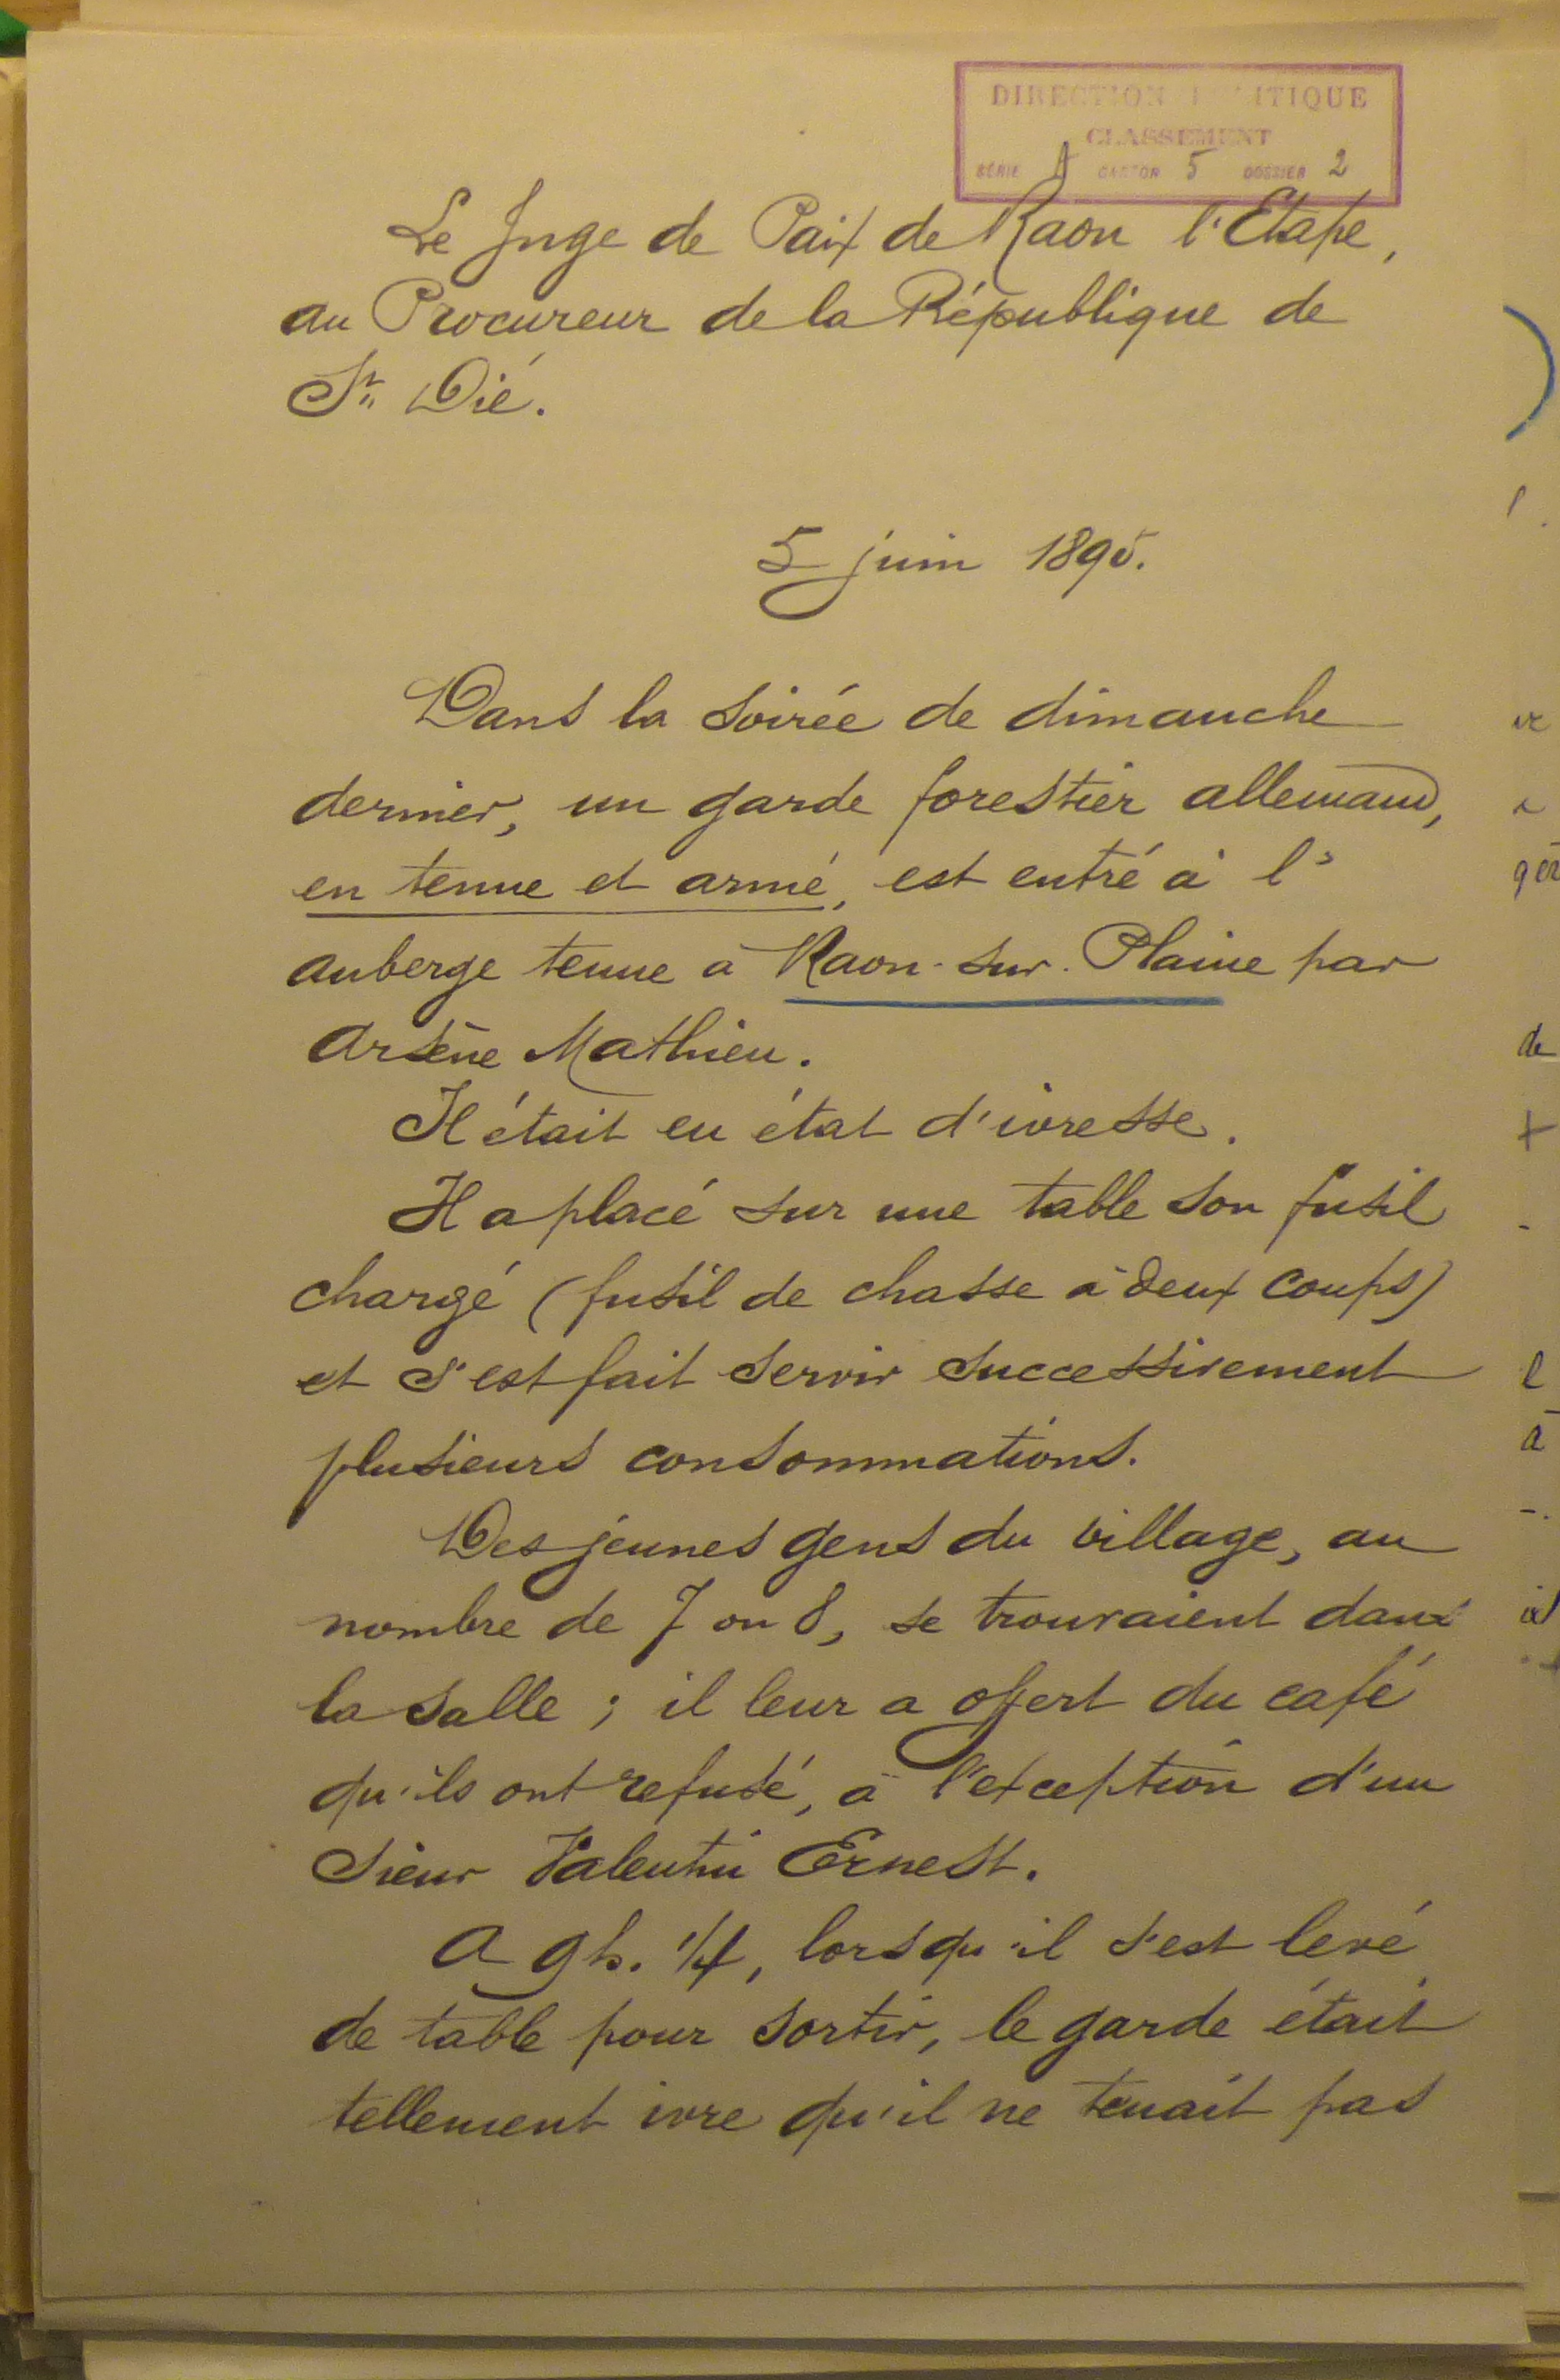 DIRECTION POLITIQUE
CLASSEMENT
SÉRIE A CARTON 5 DOSSIER 2
Le Juge de Paix de Raon l'Etape,
au Procureur de la République de
St. Dié.
5 juin 1895.
Dans la soirée de dimanche
dernier, un garde forestier allemand,
en tenue et armé, est entré à l'
auberge tenue à Raon-sur-Plaine par
Arsène Mathieu.
Il était en état d'ivresse.
Il a placé sur une table son fusil
chargé (fusil de chasse à deux coups)
et s'est fait servir successivement
plusieurs consommations.
Des jeunes gens du village, au
nombre de 7 ou 8, se trouvaient dans
la salle ; il leur a offert du café
qu'ils ont refusé, à l'exception d'un
sieur Valentin Ernest.
A 9h. 1/4, lorsqu'il s'est levé
de table pour sortir, le garde était
tellement ivre qu'il ne tenait pas